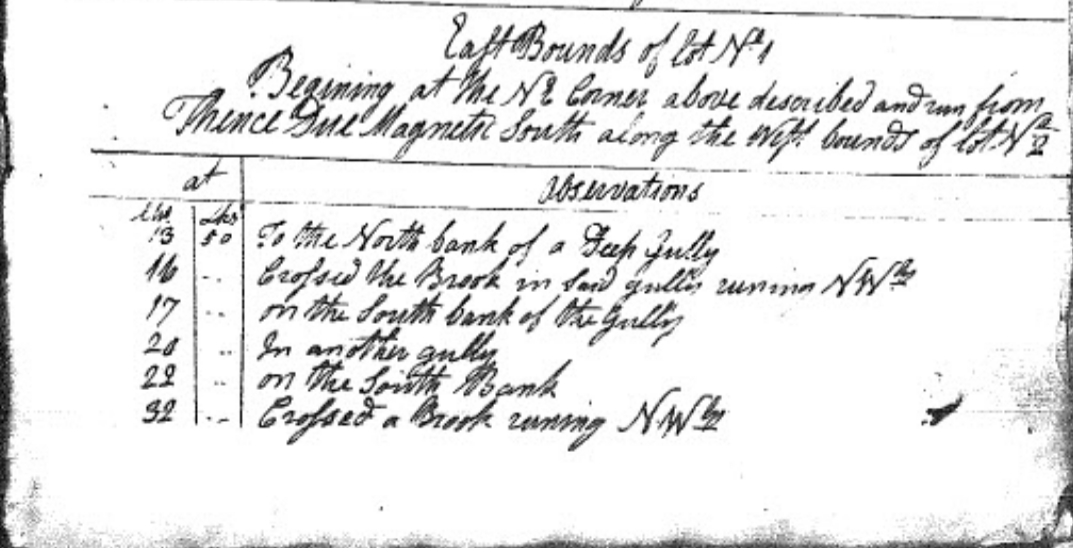 East Bounds of Lot No. 1
Begining at the N E Corner above described and run from
Thence Due Magnetic South along the West bounds of lot No. 2
at Observations
Chs Lks
13 50 To the North bank of a Deep Gully
16 .. Crossed the Brook in said gully running N Wly
17 .. on the South bank of the Gully
20 .. In another gully
22 .. on the South Bank
32 .. Crossed a Brook running N Wly